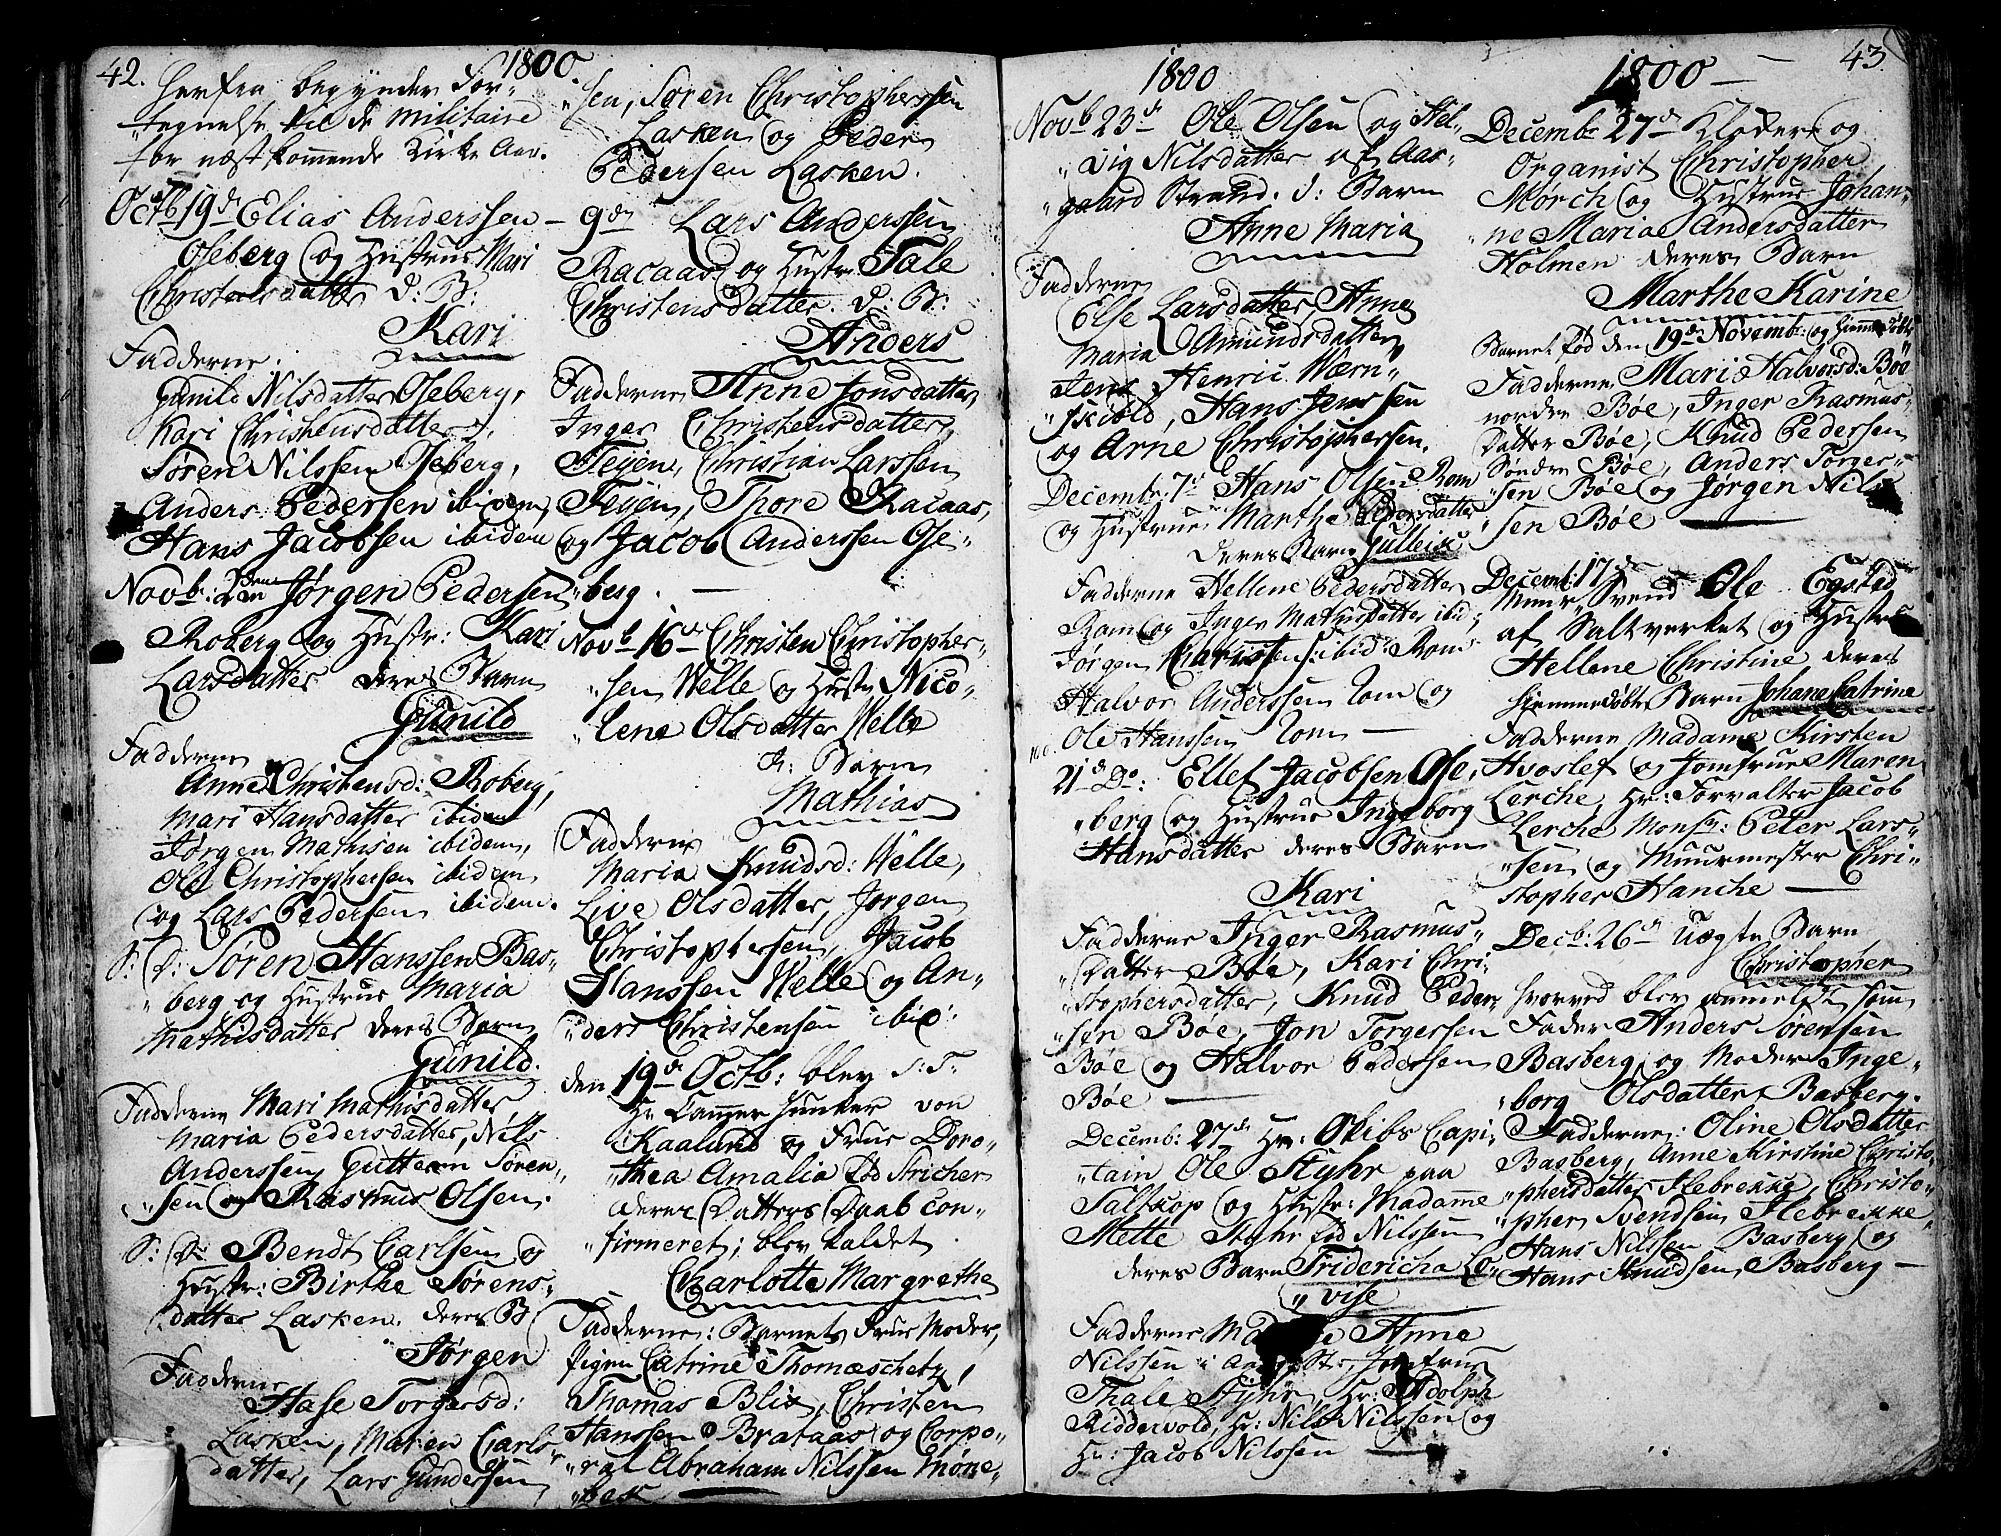 42.
1800.
Herfra begynder For-
tegnelse til de Militaire
for næstkommende Kirke Aar.
Octb 19de Elias Anderssen
Oseberg og Hustrue Mari
Christensdatter d: B:
Kari
Fadderne.
Gunild Nilsdatter Oseberg,
Kari Christensdatter,
Søren Nilssen Oseberg,
Anders Pedersen ibidem,
Hans Jacobsen ibidem
Novb: 2den Jørgen Pedersen
Roberg og Hustr: Kari
Larsdatter deres Barn
Gunild
Fadderne
Anne Christensd: Roberg,
Mari Hansdatter ibidem
Jørgen Mathisen ibidem,
Ole Christophersen ibidem
og Lars Pedersen ibidem.
S: D: Søren Hanssen Bas-
berg og Hustrue Maria
Mathisdatter deres Barn
Gunild.
Fadderne Mari Mathisdatter
Maria Pedersdatter, Nils
Anderssen, Guttorm Søren-
sen og Rasmus Olsen.
S: D: Bendt Carlsen og
Hustr: Birthe Sørens-
datter Lasken. deres B
Jørgen
Fadderne
Aase Torgersd:
Lasken, Maren Carls-
datter, Lars Gundersen
sen, Søren Christophersen
Lasken og Peder
Pedersen Lasken.
9de Lars Anderssen
Racaas og Hustr: Tale
Christensdatter. d: B:
Anders
Fadderne Anne Jonsdatter
Inger Christensdatter
Feyen, Christian Larssen
Feyen, Thore Racaas,
og Jacob Anderssen Ose-
berg. —
Novb 16de Christen Christopher-
sen Welle og Hustr Nico-
lene Olsdatter Welle
d: Barn
Mathias
Fadderne
Maria Knudsd: Welle,
Live Olsdatter, Jørgen
Christophersen, Jacob
Hanssen Welle og An-
ders Christensen ibid:
den 19de Octb: blev S: T:
Hr Cammer Junker von
Kaalund og Frue Doro-
thea Amalia fød Stricker
deres Datters Daab con-
firmeret; blev kaldet
Charlotte Margrethe
Fadderne: Barnets Frue Moder,
Pigen Catrine Thomæschetz,
Thomas Blix, Christen
Hanssen Brataas og Corpo-
ral Abraham Nilssen Møne-
bek —
1800
Novb 23de Ole Olsen og Hel-
vig Nilsdatter af Aas-
gaard Strand. d: Barn
Anne Maria
Fadderne
Else Larsdatter, Anne
Maria Amundsdatter
Jens Henric Wærn-
skiold, Hans Jenssen
og Arne Christophersen.
Decembr: 7de Hans Olsen Rom
og Hustrue Marthe Pedersdatter
deres Barn Gulleik
Fadderne Hellene Pedersdatter
Rom og Inger Mathisdatter ibid;
Jørgen Christens: ibid: Rom
Halvor Anderssen Rom og
Ole Hanssen Rom —
21de Do: Ellef Jacobsen Ose-
berg og Hustrue Ingeborg
Hansdatter deres Barn
Kari
Fadderne Inger Rasmus-
Datter Bøe, Kari Chri-
stophersdatter, Knud Peder-
sen Bøe, Jon Torgersen
Bøe og Halvor Pedersen
Bøe —
Decemb: 27de Hr: Skibs Capi-
tain Ole Styhr paa
Saltkop og Hustr: Madame
Mette Styhr fød Nilssen
deres Barn Fridericha Lo-
vise
Fadderne Madame Anne
Nilssen i Aasg: Str, Jomfrue
Thale Styhr, Hr: Adolph
Riddervold, Hr: Nils Nilssen og
Hr: Jacob Nilssen —
1800 —
43
Decembr 27de Klokker og
Organist Christopher
Mørch og Hustrue Johan-
ne Maria Andersdatter
Holmen deres Barn
Marthe Karine
Barnet fød den 19de Novemb: og Hiemmedøbt
Fadderne Mari Halvorsd: Bøe
nordre Bøe, Inger Rasmus-
Datter Bøe, Knud Pedersen
Søndre Bøe, Anders Torger-
sen Bøe og Jørgen Nils-
sen Bøe —
Decemb: 17de
Muur Svend Ole Egsted
af Saltverket og Hustrue
Hellene Christine deres
hiemmedøbte Barn Johane Catrine
Fadderne Madame Kirsten
Hvoslef og Jomfrue Maren
Lerche, Hr: Forvalter Jacob
Lerche Monsr: Peter Lars-
sen og Muurmester Chri-
stopher Hanche —
Decb: 26de Uægte Barn
Christopher
hvorved blev anmeldt som
Fader Anders Sørensen
Basberg og Moder Inge-
borg Olsdatter Basberg.
Fadderne: Oline Olsdatter
Basberg, Anne Kirstine Christo-
phersdatter Slebrekke, Christo-
pher Svendsen Slebrekke
Hans Nilssen Basberg og
Hans Knudsen Basberg —